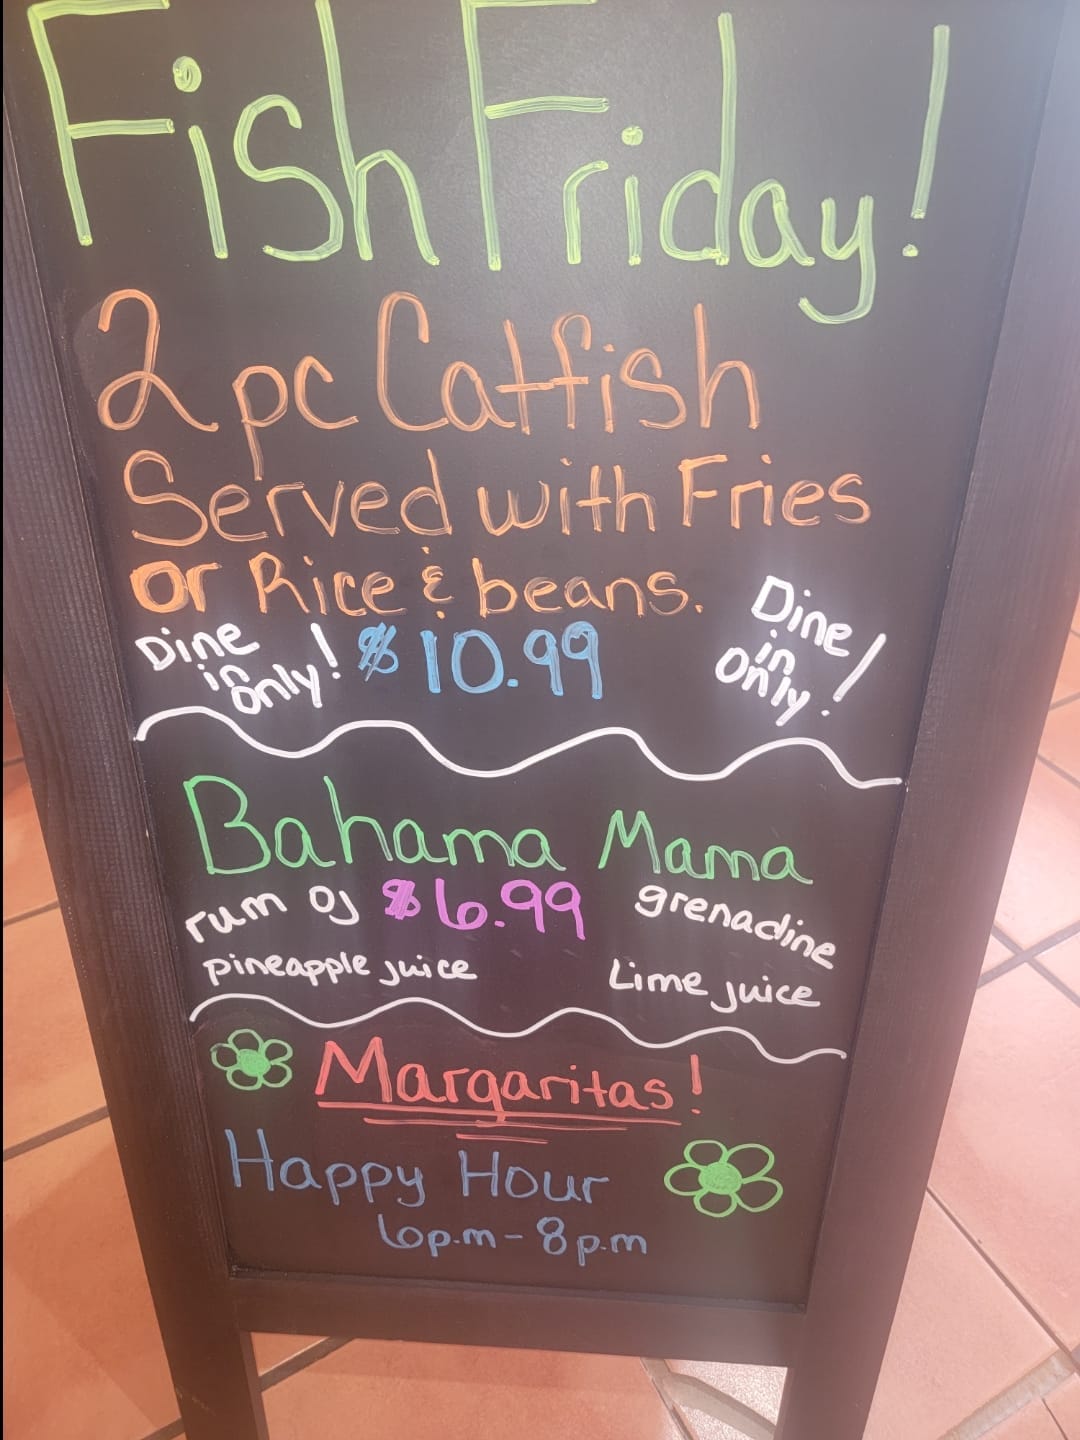 Fish Friday!
2 pc Catfish
Served with Fries
or Rice & beans.
Dine in only! $10.99 Dine in only!
Bahama Mama
rum OJ $6.99 grenadine
pineapple juice Lime juice
Margaritas!
Happy Hour
6p.m - 8p.m